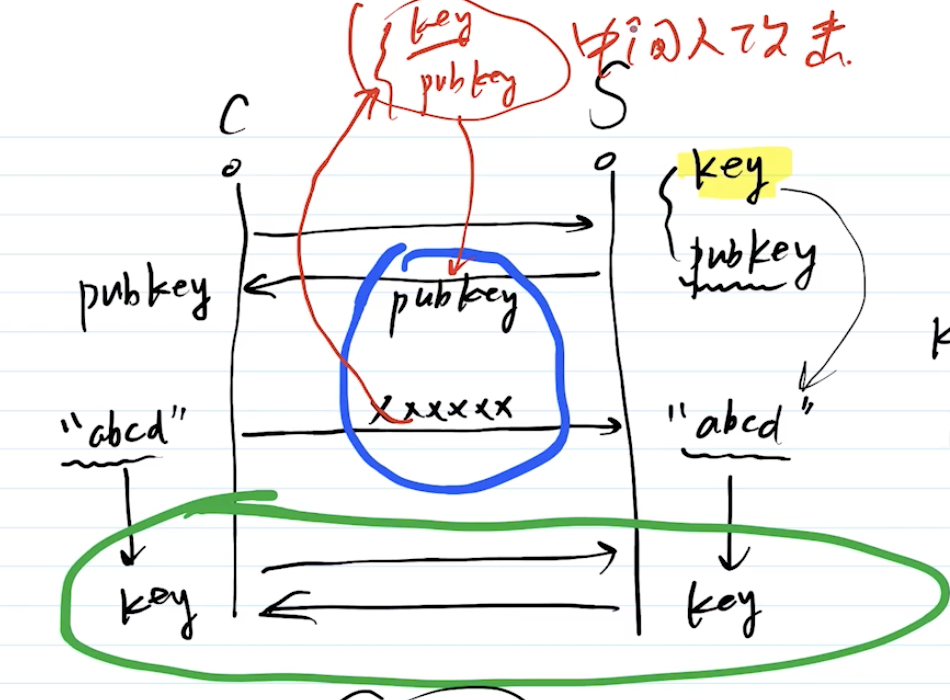 key
pubkey
中间人攻击
C
S
key
pubkey
pubkey
pubkey
xxxxxx
"abcd"
"abcd"
key
key